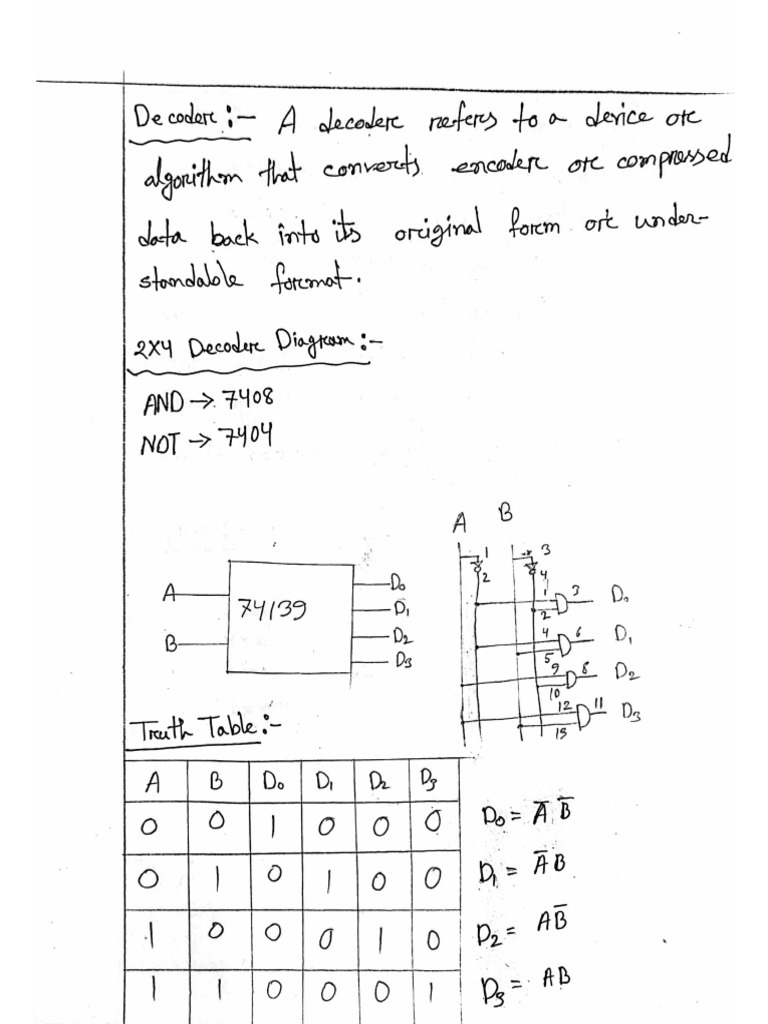 Decoder:- A decoder refers to a device or
algorithm that converts encoder or compressed
data back into its original form or under-
standable format.
2X4 Decoder Diagram:-
AND → 7408
NOT → 7404
A B
74139
A
B
D0
D1
D2
D3
1 3
2 4
1 3 D0
2
4 6 D1
5
9 8 D2
10
12 11 D3
15
Truth Table:-
A B D0 D1 D2 D3
0 0 1 0 0 0
0 1 0 1 0 0
1 0 0 0 1 0
1 1 0 0 0 1
D0 = A̅ B̅
D1 = A̅ B
D2 = A B̅
D3 = AB